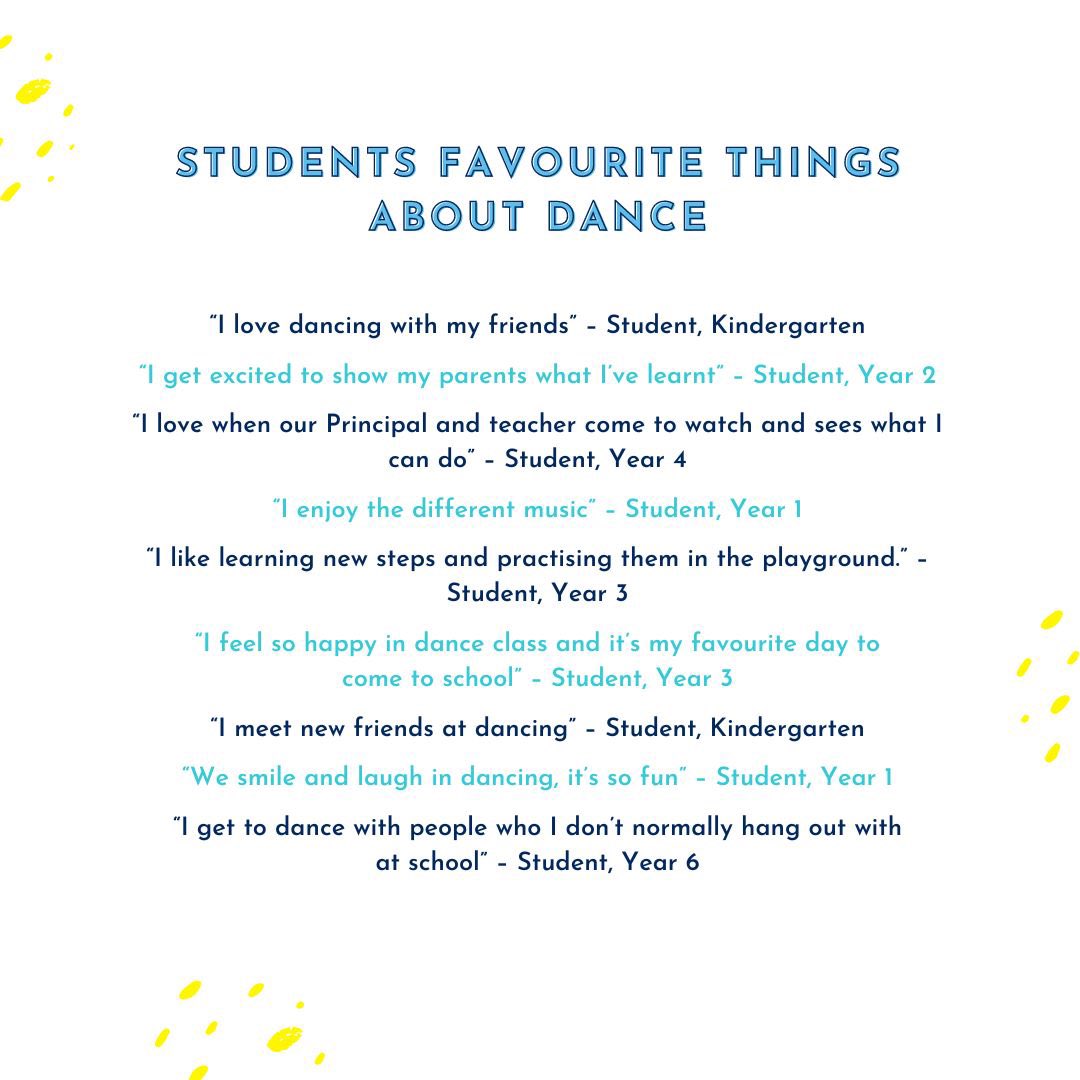 STUDENTS FAVOURITE THINGS
ABOUT DANCE
“I love dancing with my friends” – Student, Kindergarten
“I get excited to show my parents what I’ve learnt” – Student, Year 2
“I love when our Principal and teacher come to watch and sees what I
can do” – Student, Year 4
“I enjoy the different music” – Student, Year 1
“I like learning new steps and practising them in the playground.” –
Student, Year 3
“I feel so happy in dance class and it’s my favourite day to
come to school” – Student, Year 3
“I meet new friends at dancing” – Student, Kindergarten
“We smile and laugh in dancing, it’s so fun” – Student, Year 1
“I get to dance with people who I don’t normally hang out with
at school” – Student, Year 6